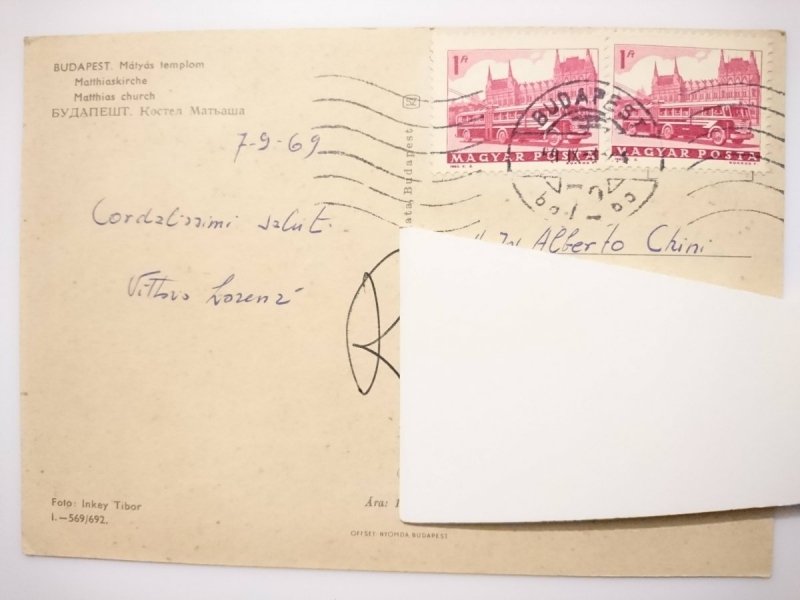 BUDAPEST. Mátyás templom
Matthiaskirche
Matthias church
БУДАПЕШТ. Костел Матьаша
7-9-69
Cordialissimi saluti.
Vittorio Lorenzi
1 Ft
MAGYAR POSTA
1 Ft
MAGYAR POSTA
BUDAPEST
Alberto Chini
Budapest
Foto: Inkey Tibor
I.—569/692.
Ára:
OFFSET NYOMDA BUDAPEST